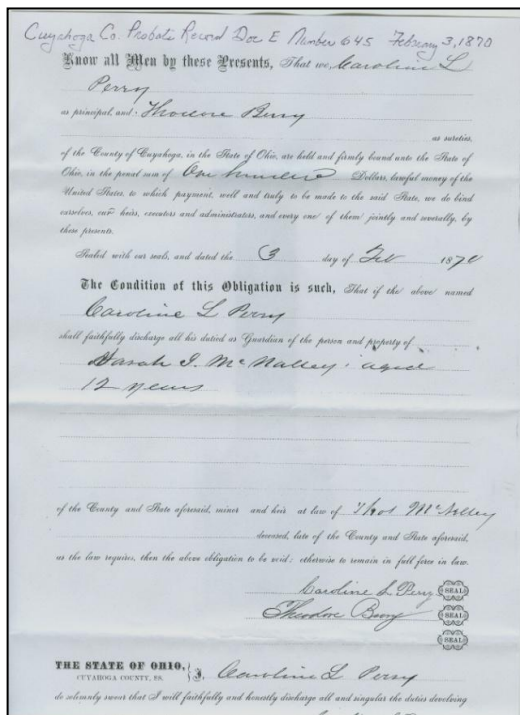 Cuyahoga Co. Probate Record Doc E Number 645 February 3, 1870
Know all Men by these Presents, That we, Caroline L
Perry
as principal, and Theodore Bury
as sureties,
of the County of Cuyahoga, in the State of Ohio, are held and firmly bound unto the State of
Ohio, in the penal sum of One hundred Dollars, lawful money of the
United States, to which payment, well and truly to be made to the said State, we do bind
ourselves, our heirs, executors and administrators, and every one of them jointly and severally, by
these presents.
Sealed with our seals, and dated the 3 day of Feb 1870
The Condition of this Obligation is such, That if the above named
Caroline L Perry
shall faithfully discharge all his duties as Guardian of the person and property of
Sarah I. McNalley, aged
12 years
of the County and State aforesaid, minor and heir at law of Thos McNelley
deceased, late of the County and State aforesaid,
as the law requires, then the above obligation to be void; otherwise to remain in full force in law.
Caroline L Perry SEAL
Theodore Bury SEAL
SEAL
THE STATE OF OHIO,
CUYAHOGA COUNTY, SS. } I, Caroline L Perry
do solemnly swear that I will faithfully and honestly discharge all and singular the duties devolving